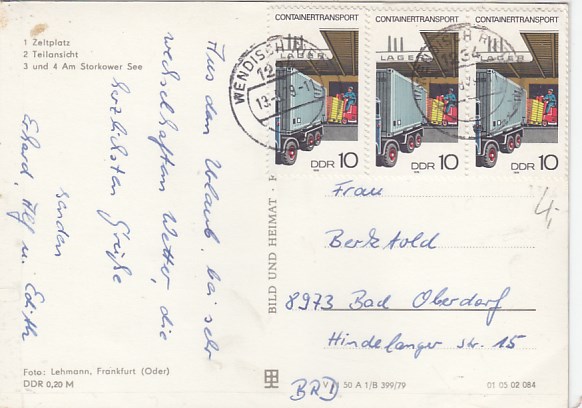 1 Zeltplatz
2 Teilansicht
3 und 4 Am Storkower See
Aus dem Urlaub, bei sehr
wechselhaften Wetter, die
herzlichsten Grüße
senden
Erhard, Alf u. Edith
Foto: Lehmann, Frankfurt (Oder)
DDR 0,20 M
BILD UND HEIMAT
CONTAINERTRANSPORT
LAGER
DDR 10
CONTAINERTRANSPORT
LAGER
DDR 10
CONTAINERTRANSPORT
DDR 10
WENDISCH
4,-
Frau
Berktold
8973 Bad Oberdorf
Hindelanger str. 15
BRD
V 50 A 1/B 399/79
01 05 02 084